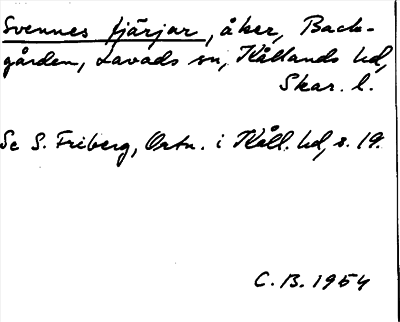 Svennes fjärjar, åker, Back-
gården, Lavads sn, Kållands hd,
Skar. l.
Se S. Friberg, Ortn. i Kåll. hd, s. 19.
C. B. 1954